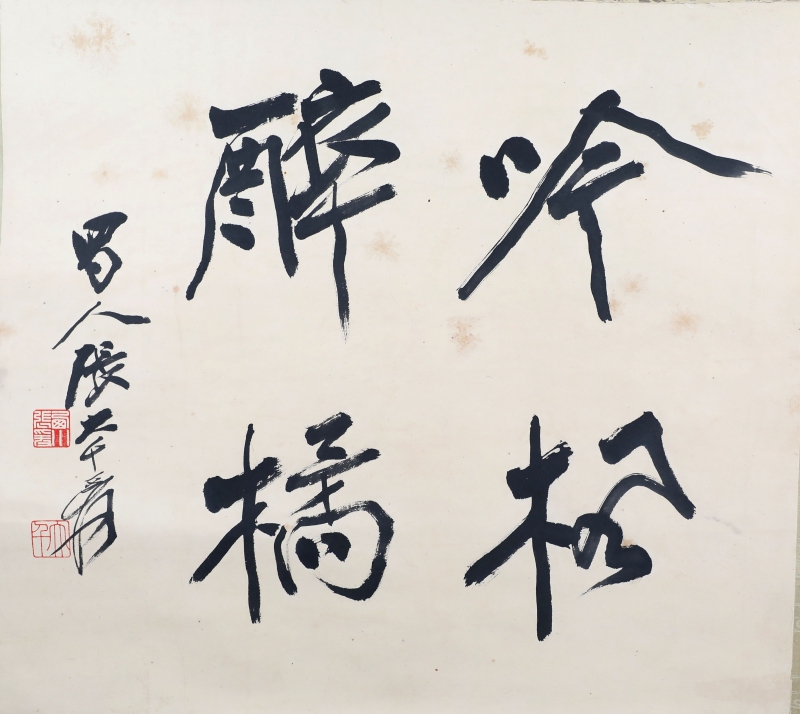 吟松
醉橘
蜀人張大千爰
大千